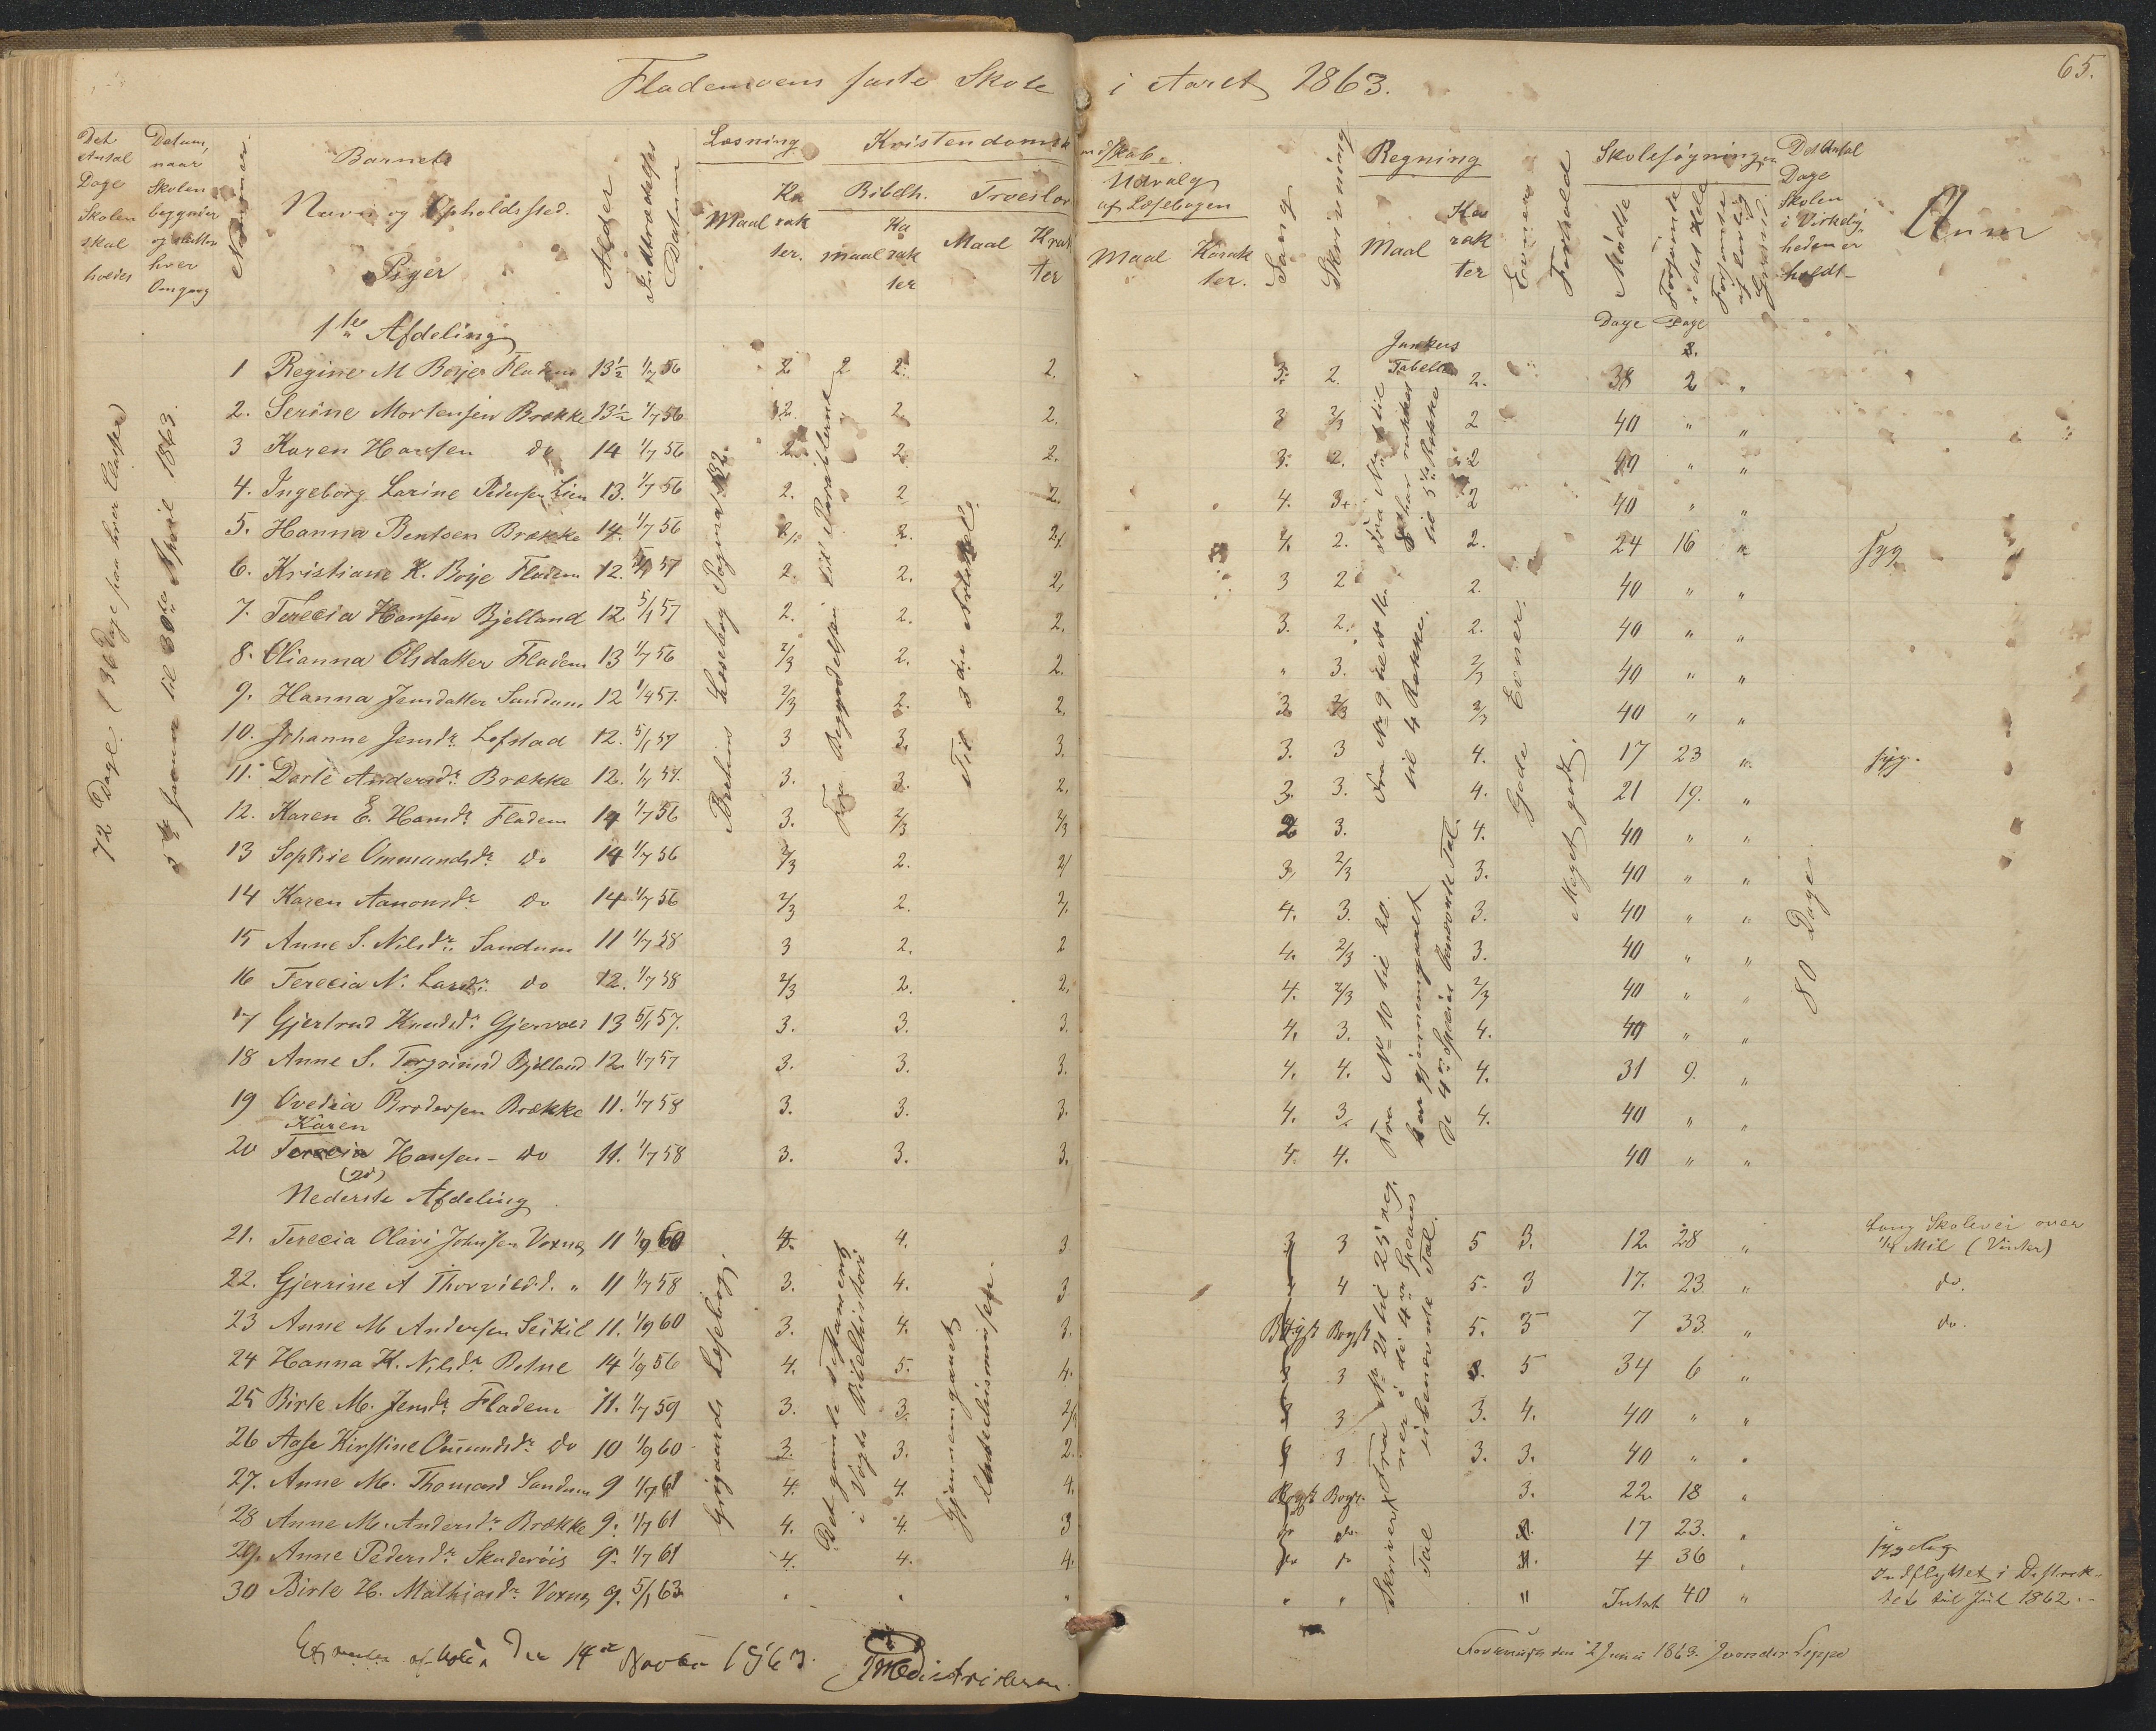 Flademoens faste Skole i Aaret 1863.
65.
Det Antal Dage Skolen skal holdes
Datum, naar Skolen begynder og slutter hver Omgang
Nummer.
Barnets
Navn og Opholdssted.
Piger
Alder
Indtrædelses Datum
Læsning
Maal
Karakter.
Kristendomskundskab.
Bibelh.
maal
Karakter
Troeslære
Maal
Karakter
Udvalg af Læsebogen
Maal
Karakter.
Sang
Skrivning
Regning
Maal
Karakter
Evner
Forhold
Skolesøgningen
Mødte
Dage
Forsømte i det Hele
Dage
Forsømte af lovlig Grund
Det Antal Dage Skolen i Virkeligheden er holdt
Anm
72 Dage (36 Dage paa hver Classe)
5te Januar til 30te April 1863.
1te Afdeling
1 Regine M Boije Fladem 13½ 1/7 56 2 2 2. 2. 3. 2. 2. 38 2 "
2. Serine Mortensen Brække 13½ 1/7 56 2. 2. 2. 3 2/3 2 40 " "
3 Karen Hansen do 14 1/7 56 2. 2. 2. 3. 2. 2 40 " "
4. Ingeborg Larine Pedersen Lien 13. 1/7 56 2. 2 2. 4. 3+ 2 40 " "
5. Hanna Bentsen Brække 14. 1/7 56 2. 2. 2. 24 16 " syg
6. Kristiane K. Boije Fladem 12. 57 2. 2. 2. 3 2 2. 40 " "
7. Terecia Hansen Bjelland 12. 5/1 57 2. 2. 2. 3. 2. 2. 40 " "
8. Olianna Olsdatter Fladem 13 1/7 56 2/3 2. 2. " 3. 2/3 40 " "
9. Hanna Jensdatter Sandum 12 1/4 57. 2/3 2. 2. 3. 2/3 2/3 40 " "
10. Johanne Jensdr. Lofstad 12. 5/1 57 3 3. 3. 3. 3 4. 17 23 " syg.
11. Dorte Andersdr. Brække 12. 57. 3. 3. 2. 3. 3. 4. 21 19. "
12. Karen E. Hansdr. Fladem 14 1/7 56 3. 2/3 2/3 2 3. 4. 40 " "
13 Sophie Ommundsdr. do 14 1/7 56 2/3 2. 2/ 3, 2/3 3. 40 " "
14 Karen Aanonsdr. do 14 1/7 56 2/3 2. 2. 4. 3. 3. 40 " "
15 Anne S. Nilsdr. Sandum 11 1/7 58 3 2. 2 4. 2/3 3. 40 " "
16 Terecia N. Larsdr. do 12. 1/7 58 2/3 2. 2, 4. 2/3 2/3 40 " "
17 Gjertrud Knudsdr. Gjervold 13 5/1 57. 3. 3. 3. 4. 3. 4. 40 " "
18 Anne S. Torgrimsd Bjelland 12. 1/7 57 3. 3. 3. 4. 4. 4. 31 9. "
19 Ovedia Brodersen Brække 11. 1/7 58 3. 3. 3. 4. 3. 4. 40 " "
Karen
20 Terecia Hansen - do 11. 1/7 58 3. 3. 3. 4. 4. 40 " "
(20)
Brehms Læsebog Pagina 132.
Fra Begyndelsen til Parablerne
Til 3die Artikel.
Junkers Tabeller
Fra No 1 til 8 har rukket til 5te Række
Fra No 9 til
til 4 Række.
Fra No 10 til 20.
har gjennemgaaet
de 4re Species benævnte Tal.
Gode Evner.
Meget godt.
80 Dage.
Nederste Afdeling
21. Terecia Olavi Johnsen Voxnæ 11 1/9 60 4. 4. 3 3 3 5 3. 12 28 " Lang Skolevei over ¼ Mil (Vinter)
22. Gjerrine A Thorvildd. " 11 1/7 58 3. 4. 3 4 5. 3 17. 23. " do.
23 Anne M Andersen Seikil 11. 1/9 60 3. 4. 3. Bogst 5. 5 7 33. " do.
24 Hanna K. Nilsdr. 14 1/9 56 4. 5. 4. 3 3. 5 34 6 "
25 Birte M. Jensdr. Fladem 11. 1/7 59 3. 3. 3 3. 4. 40 " "
26 Aase Kirstine Omundsdr. do 10 1/9 60 3. 3. 2. 3 3. 3. 40 " "
27. Anne M. Thomasd Sandum 9 1/7 61 4. 4. 4. Bogst Bogst. 3. 22 18 "
28 Anne M. Andersdr. Brække 9. 1/7 61 4. 4. 3 do. 17 23. "
29. Anne Pedersdr. Skuderöis 9. 1/7 61 4. 4. 4. 4 36 " sygelig
30 Birte H. Mathiasdr. Voxnæ 9. 5/1 63 " " " " Intet 40 " Indflyttet i Distrektet til Juil 1862.-
Grögaards Læsebog.
Det gamle Testament
i Vogts Bibelhistorie
Gjennemgaaet
Fra No 21 til 25 reg.
ner i de 4re Species
ubenævnte Tal.
Skriver
Tal
Examen afholdt Den 14de Novbr 1863.
den 2 Junii 1863. J von der Lippe